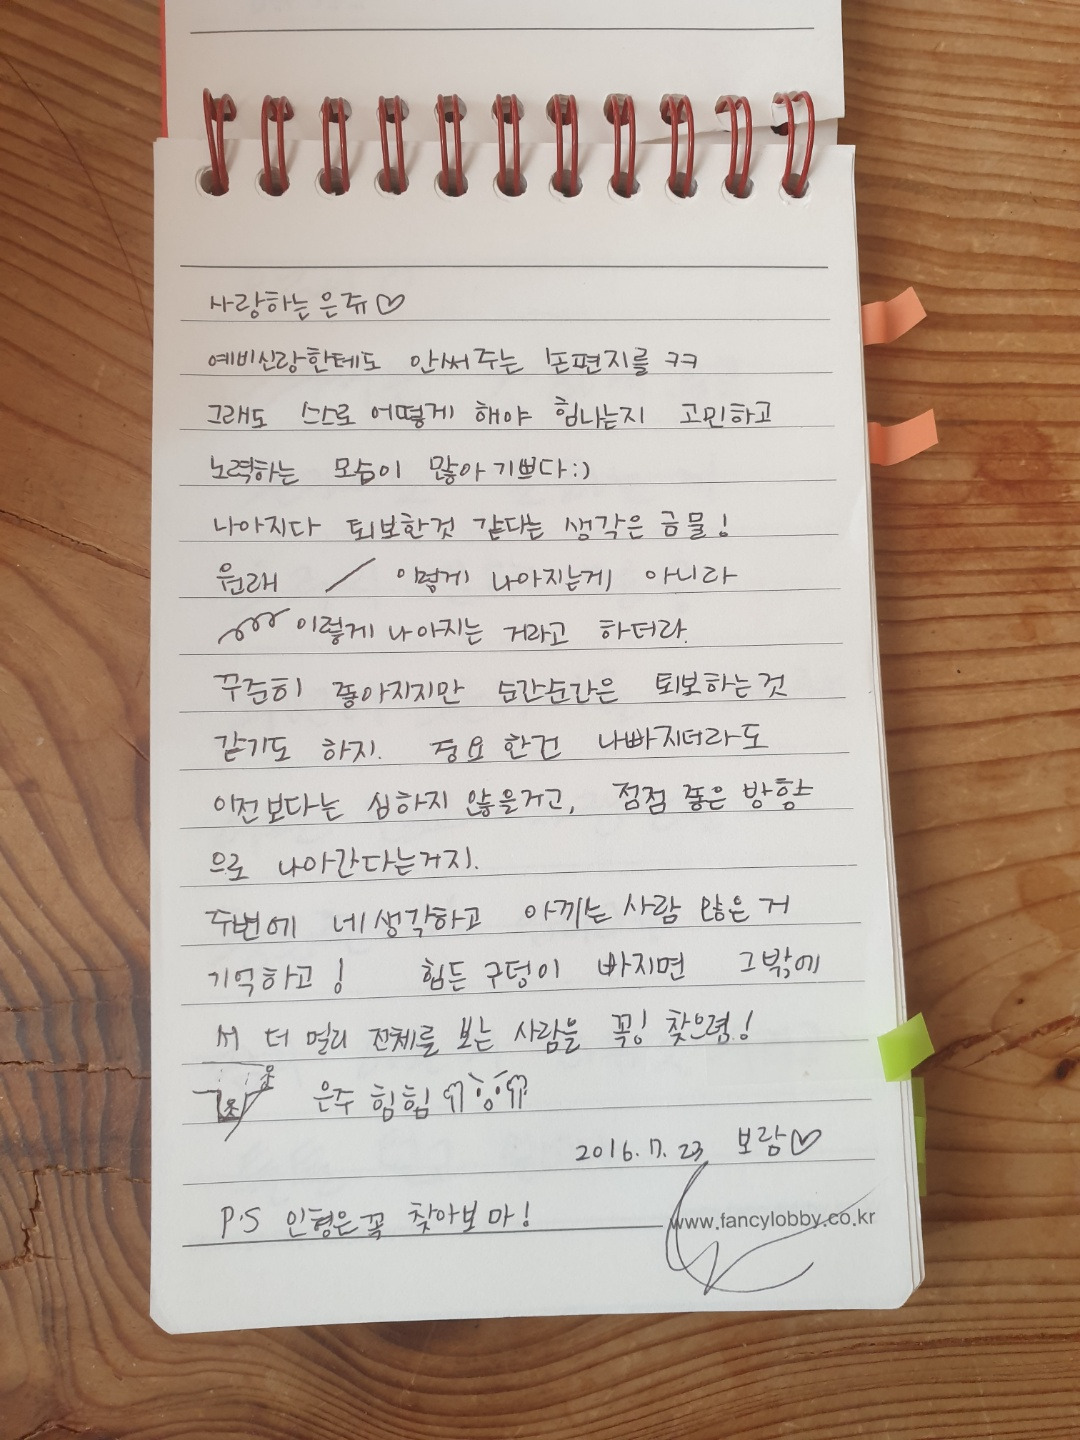 사랑하는 은쥬♡
예비신랑한테도 안써주는 손편지를 ㅋㅋ
그래도 스스로 어떻게 해야 힘나는지 고민하고
노력하는 모습이 많아 기쁘다:)
나아지다 퇴보한것 같다는 생각은 금물!
원래 이렇게 나아지는게 아니라
이렇게 나아지는 거라고 하더라.
꾸준히 좋아지지만 순간순간은 퇴보하는것
같기도 하지. 중요한건 나빠지더라도
이전보다는 심하지 않을거고, 점점 좋은 방향
으로 나아간다는거지.
주변에 네생각하고 아끼는 사람 많은 거
기억하고! 힘든 구덩이 빠지면 그밖에
서 더 멀리 전체를 보는 사람을 꼭! 찾으렴!
은주 힘힘
2016.7.23 보람♡
P.S 인형은 꼭 찾아보마!
www.fancylobby.co.kr